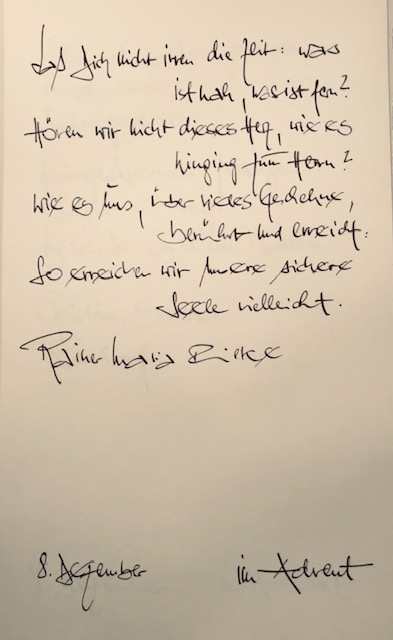 Laß dich nicht irren die Zeit: was
ist nah, was ist fern?
Hören wir nicht dieses Herz, wie es
hinging zum Herrn?
wie es uns, über vieles Geschehne,
berührt und erreicht:
So erreichen wir unsere sichere
Seele vielleicht.
Rainer Maria Rilke
8. Dezember im Advent